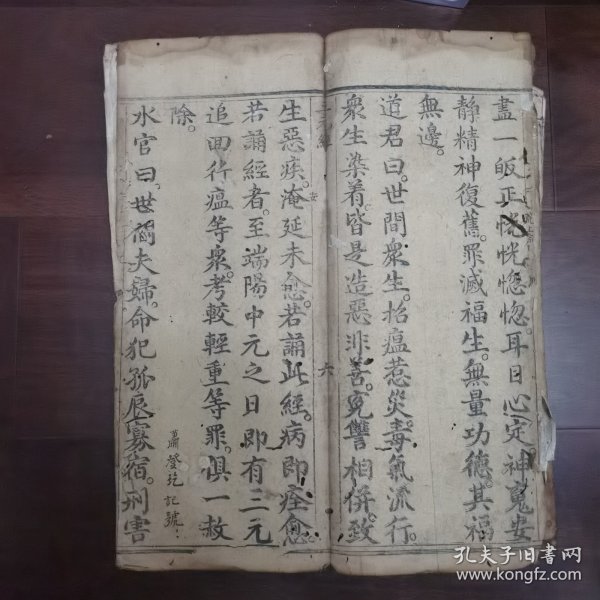 盡一皈正恍恍惚惚耳目心定神䰟安
静精神復舊罪滅福生無量功德其福
無邊。
道君曰。世間衆生。招瘟惹災毒氣流行。
衆生染着。皆是造惡非善。寃讐相併。致
六
生惡疾。淹延未愈。若誦此經。病即痊愈。
若誦經者。至端陽中元之日即有三元
追回行瘟等衆。考較輕重等罪。俱一赦
除。
水官曰。世間夫婦。命犯孤辰寡宿。刑害
記號
孔夫子旧书网
www.kongfz.com